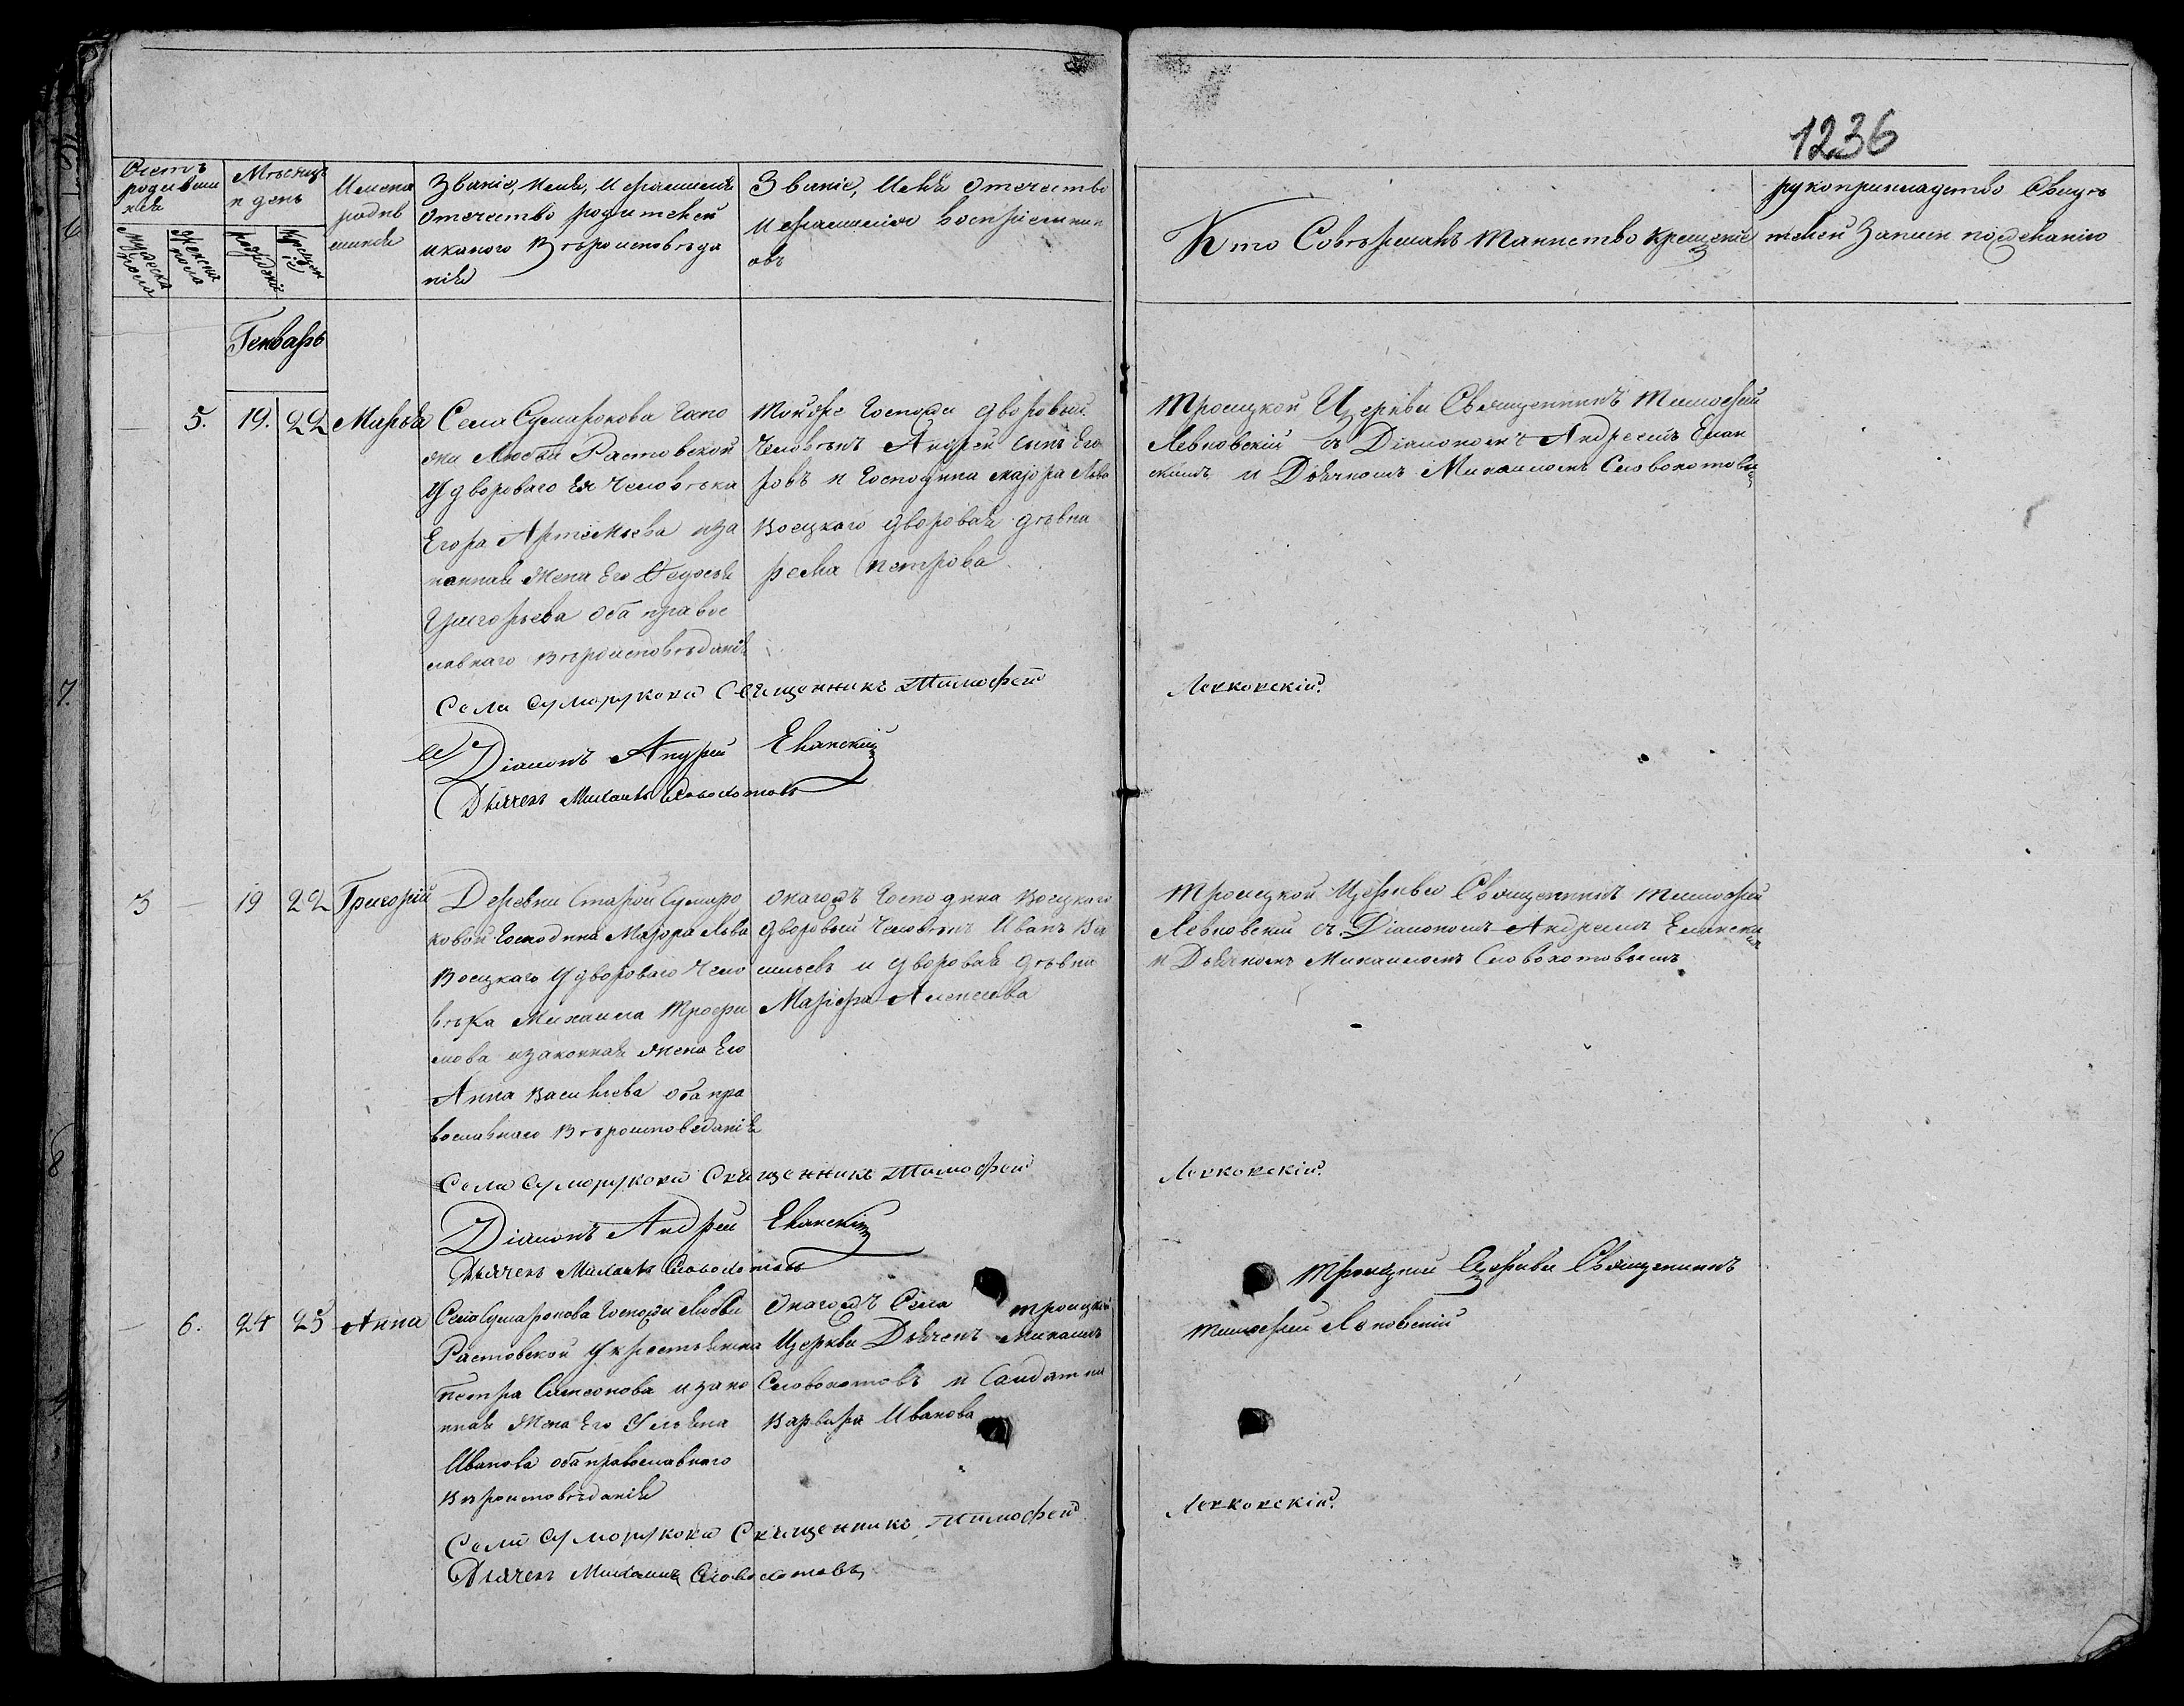 1236
Счетъ
родивши
хся
Мѣсяцъ
и день
Имена
родив
шихся
Званіе, Имя, и фамилія
отечество родителей
и какого Вѣроисповѣда
нія
Званіе, Имя отечество
и фамилія Воспріемник
овъ
Кто Совѣршалъ Таинство Крещеніе
рукоприкладство Свидѣ
телей Записи по желанію
Мужеска
пола
Женска
пола
рожденія
Крещен
ія
Генварь
5.
19.
22
Марья
Села Сумарокова Госпо
жи Любви Растовской
У двороваго Ея Человѣка
Егора Артемьева иза
конная Жена Его Федосья
Григорьева оба правос
лавнаго Вѣроисповѣданія
Тойже Госпожи дворовой
Человѣкъ Андрей сынъ Его
ровъ и Господина маіора Льва
Воецкаго дворовая дѣвка
Петрова
Троицкой Церкви Священникъ Тимофей
Левковскій съ Діакономъ Андреемъ Елан
скимъ и Дьячкомъ Михаиломъ Словохотовы
Села Суморукова Священникъ Тимофей
Левковскій
Діаконъ Андрей Еланскій
Дьячекъ Михаилъ Словохотовъ
3
19
22
Григорій
Деревни Старой Сумаро
ковой Господина Маіора Льва
Воецкаго У двороваго Чело
вѣка Михаила Трофи
мова изаконная Жена Его
Анна Васильева оба пра
вославнаго Вѣроисповеданія
Господина Воецкаго
дворовый Человѣкъ Иванъ Ва
сильевъ и дворовая дѣвка
Марфа Алексеева
Троицкой Церкви Священникъ Тимофей
Левковскій съ Діакономъ Андреемъ Елански
и Дьячкомъ Михаиломъ Словохотовымъ
Села Суморукова Священникъ Тимофей
Левковскій
Діаконъ Андрей Еланскій
Дьячекъ Михаилъ Словохотовъ
6.
24
25
Анна
Село Сумарокова Госпожи Любви
Растовской У крестьянина
Петра Симеонова и зако
нная Жена Его Ульяна
Иванова оба православнаго
Вѣроисповѣданія
Села Троицкой
Церкви Дьячекъ Михаилъ
Словохотовъ и Салдатка
Варвара Иванова
Троицкой Церкви Священникъ
Тимофей Левковскій
Села Суморукова Священникъ Тимофей
Левковскій
Дьячекъ Михаилъ Словохотовъ